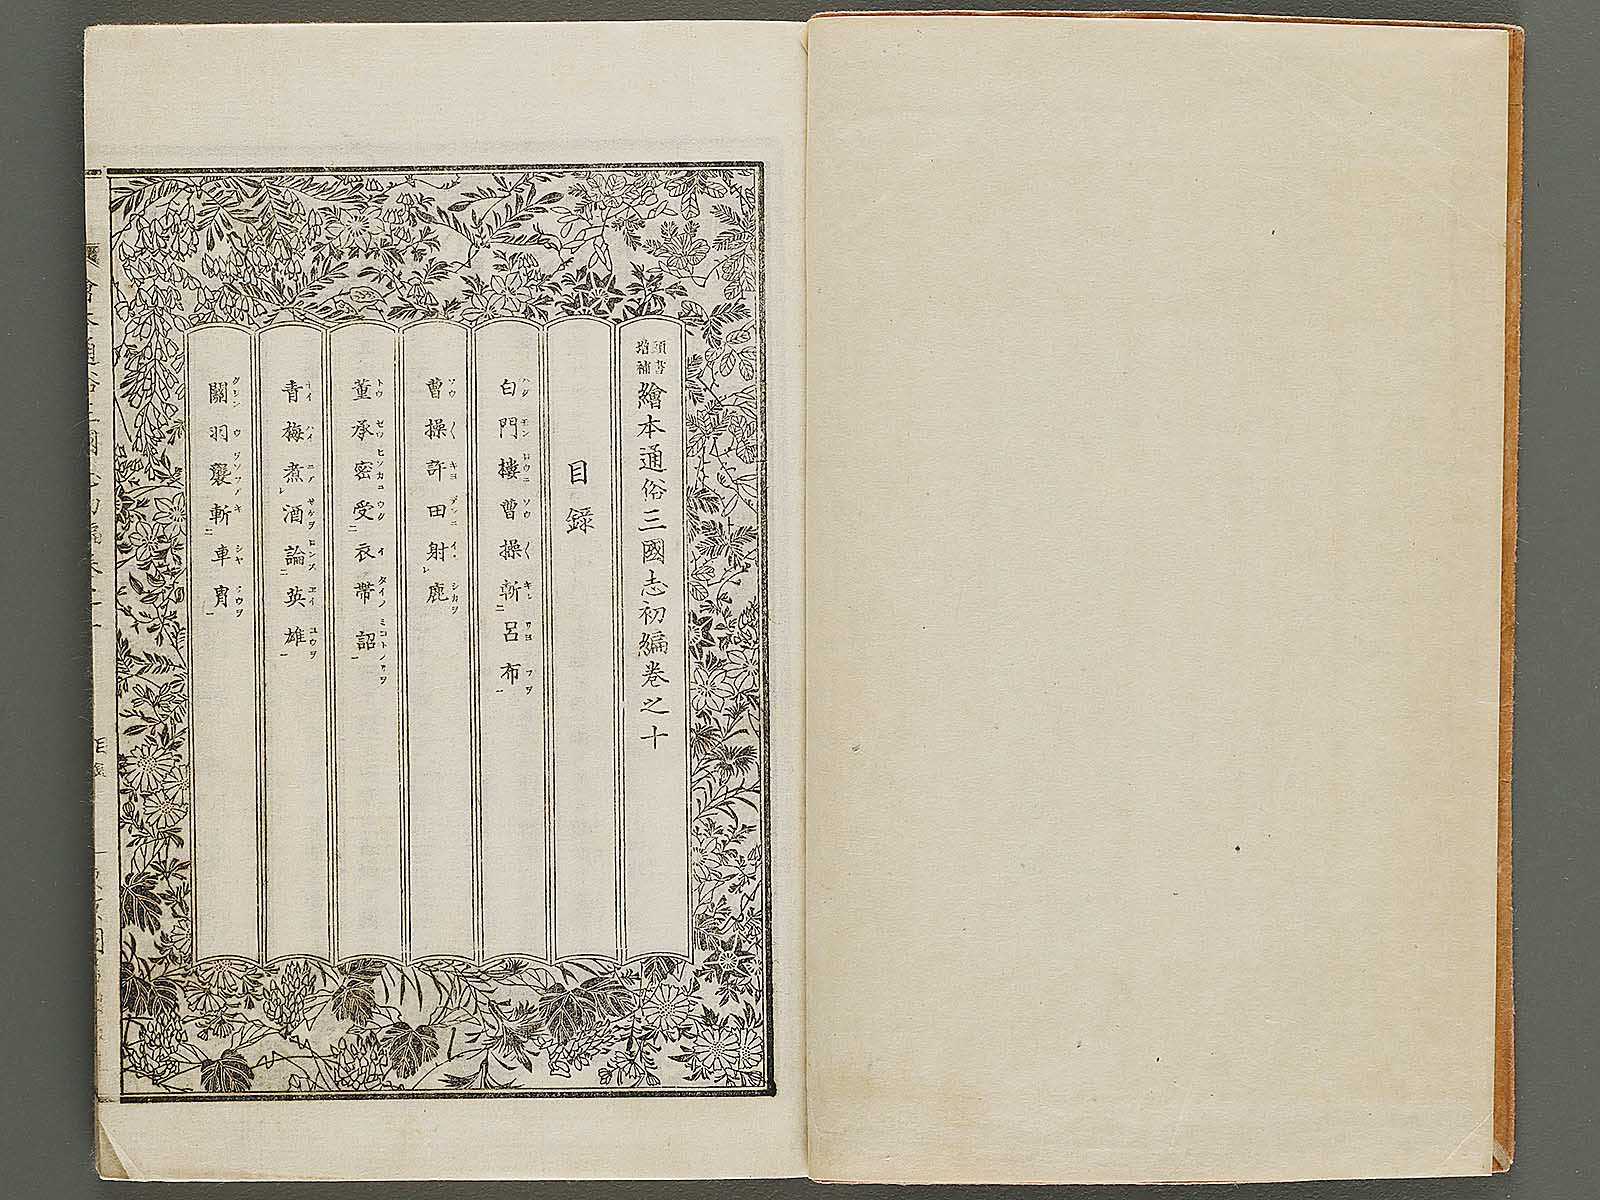 増補 頭書 繪本通俗三國志初編巻之十
目錄
白門樓曹操斬呂布
曹操許田射鹿
董承密受衣帶詔
青梅煮酒論英雄
關羽襲斬車冑